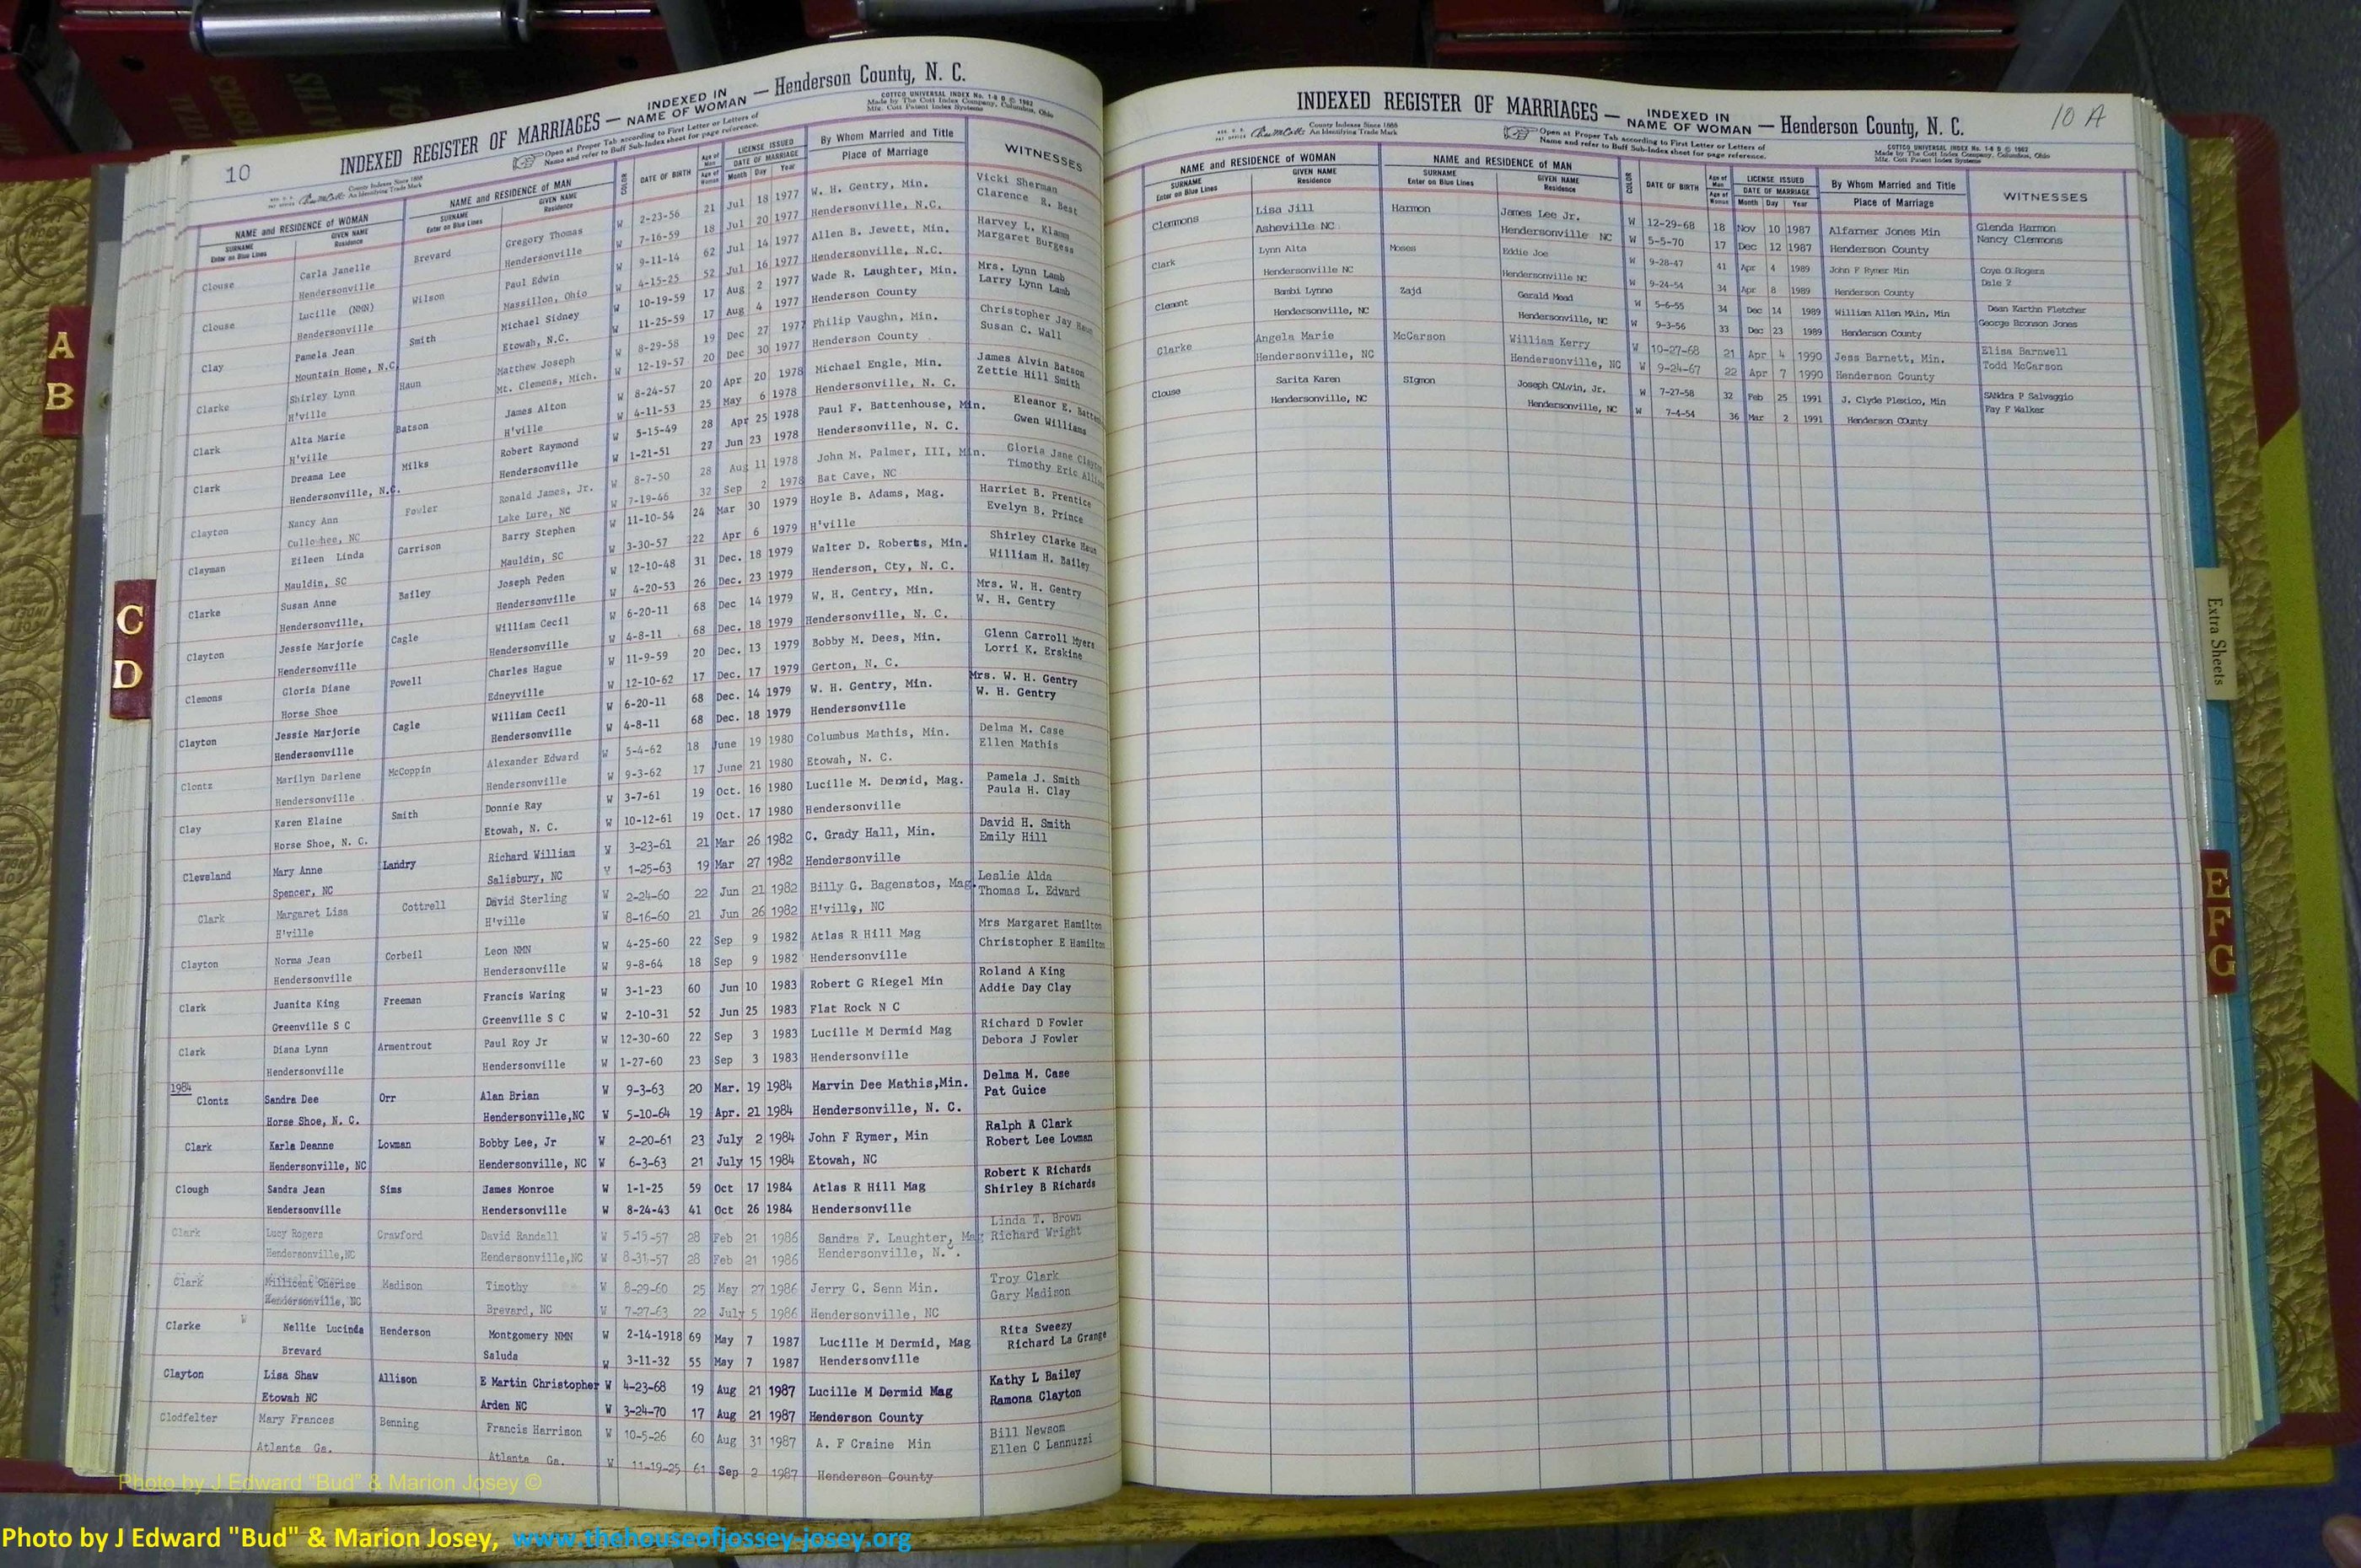 10
INDEXED REGISTER OF MARRIAGES — INDEXED IN NAME OF WOMAN — Henderson County, N. C.
County Indexes Since 1888
An Identifying Trade Mark
Open at Proper Tab according to First Letter or Letters of
Name and refer to Buff Sub-Index sheet for page reference.
COTTCO UNIVERSAL INDEX No. 1-8 D © 1962
Made by The Cott Index Company, Columbus, Ohio
Mfg. Cott Patent Index Systems
NAME and RESIDENCE OF WOMAN NAME and RESIDENCE OF MAN COLOR DATE OF BIRTH Age of Man LICENSE ISSUED By Whom Married and Title WITNESSES
SURNAME GIVEN NAME SURNAME GIVEN NAME Age of Woman DATE OF MARRIAGE Place of Marriage
Enter on Blue Lines Residence Enter on Blue Lines Residence Month Day Year
Clouse Carla Janelle Brevard Gregory Thomas W 2-23-56 21 Jul 18 1977 W. H. Gentry, Min. Vicki Sherman
Hendersonville Hendersonville W 7-16-59 18 Jul 20 1977 Hendersonville, N.C. Clarence R. Best
Clouse Lucille (NMN) Wilson Paul Edwin W 9-11-14 62 Jul 14 1977 Allen B. Jewett, Min. Harvey L. Klamm
Hendersonville Massillon, Ohio W 4-15-25 52 Jul 16 1977 Hendersonville, N.C. Margaret Burgess
Clay Pamela Jean Smith Michael Sidney W 10-19-59 17 Aug 2 1977 Wade R. Laughter, Min. Mrs. Lynn Lamb
Mountain Home, N.C. Etowah, N.C. W 11-25-59 17 Aug 4 1977 Henderson County Larry Lynn Lamb
Clarke Shirley Lynn Haun Matthew Joseph W 8-29-58 19 Dec 27 1977 Philip Vaughn, Min. Christopher Jay Haun
H'ville Mt. Clemens, Mich. W 12-19-57 20 Dec 30 1977 Henderson County Susan C. Wall
Clark Alta Marie Batson James Alton W 8-24-57 20 Apr 20 1978 Michael Engle, Min. James Alvin Batson
H'ville H'ville W 4-11-53 25 May 6 1978 Hendersonville, N. C. Zettie Hill Smith
Clark Dreama Lee Milks Robert Raymond W 5-15-49 28 Apr 25 1978 Paul F. Battenhouse, Min. Eleanor E.
Hendersonville, N.C. Hendersonville W 1-21-51 27 Jun 23 1978 Hendersonville, N. C. Gwen Williams
Clayton Nancy Ann Fowler Ronald James, Jr. W 8-7-50 28 Aug 11 1978 John M. Palmer, III, Min. Gloria Jane
Cullowhee, NC Lake Lure, NC W 7-19-46 32 Sep 2 1978 Bat Cave, NC Timothy Eric
Clayman Eileen Linda Garrison Barry Stephen W 11-10-54 24 Mar 30 1979 Hoyle B. Adams, Mag. Harriet B. Prentice
Mauldin, SC Mauldin, SC W 3-30-57 22 Apr 6 1979 H'ville Evelyn B. Prince
Clarke Susan Anne Bailey Joseph Peden W 12-10-48 31 Dec. 18 1979 Walter D. Roberts, Min. Shirley Clarke Haun
Hendersonville, Hendersonville W 4-20-53 26 Dec. 23 1979 Henderson, Cty, N. C. William H. Bailey
Clayton Jessie Marjorie Cagle William Cecil W 6-20-11 68 Dec 14 1979 W. H. Gentry, Min. Mrs. W. H. Gentry
Hendersonville Hendersonville W 4-8-11 68 Dec. 18 1979 Hendersonville, N. C. W. H. Gentry
Clemons Gloria Diane Powell Charles Hague W 11-9-59 20 Dec. 13 1979 Bobby M. Dees, Min. Glenn Carroll Myers
Horse Shoe Edneyville W 12-10-62 17 Dec. 17 1979 Gerton, N. C. Lorri K. Erskine
Clayton Jessie Marjorie Cagle William Cecil W 6-20-11 68 Dec. 14 1979 W. H. Gentry, Min. Mrs. W. H. Gentry
Hendersonville Hendersonville W 4-8-11 68 Dec. 18 1979 Hendersonville W. H. Gentry
Clontz Marilyn Darlene McCoppin Alexander Edward W 5-4-62 18 June 19 1980 Columbus Mathis, Min. Delma M. Case
Hendersonville Hendersonville W 9-3-62 17 June 21 1980 Etowah, N. C. Ellen Mathis
Clay Karen Elaine Smith Donnie Ray W 3-7-61 19 Oct. 16 1980 Lucille M. Dermid, Mag. Pamela J. Smith
Horse Shoe, N. C. Etowah, N. C. W 10-12-61 19 Oct. 17 1980 Hendersonville Paula H. Clay
Cleveland Mary Anne Landry Richard William W 3-23-61 21 Mar 26 1982 C. Grady Hall, Min. David H. Smith
Spencer, NC Salisbury, NC W 1-25-63 19 Mar 27 1982 Hendersonville Emily Hill
Clark Margaret Lisa Cottrell David Sterling W 2-24-60 22 Jun 21 1982 Billy G. Bagenstos, Mag. Leslie Alda
H'ville H'ville W 8-16-60 21 Jun 26 1982 H'ville, NC Thomas L. Edward
Clayton Norma Jean Corbeil Leon NMN W 4-25-60 22 Sep 9 1982 Atlas R Hill Mag Mrs Margaret Hamilton
Hendersonville Hendersonville W 9-8-64 18 Sep 9 1982 Hendersonville Christopher E Hamilton
Clark Juanita King Freeman Francis Waring W 3-1-23 60 Jun 10 1983 Robert G Riegel Min Roland A King
Greenville S C Greenville S C W 2-10-31 52 Jun 25 1983 Flat Rock N C Addie Day Clay
Clark Diana Lynn Armentrout Paul Roy Jr W 12-30-60 22 Sep 3 1983 Lucille M Dermid Mag Richard D Fowler
Hendersonville Hendersonville W 1-27-60 23 Sep 3 1983 Hendersonville Debora J Fowler
1984
Clontz Sandra Dee Orr Alan Brian W 9-3-63 20 Mar. 19 1984 Marvin Dee Mathis,Min. Delma M. Case
Horse Shoe, N. C. Hendersonville,NC W 5-10-64 19 Apr. 21 1984 Hendersonville, N. C. Pat Guice
Clark Karla Deanne Lowman Bobby Lee, Jr W 2-20-61 23 July 2 1984 John F Rymer, Min Ralph A Clark
Hendersonville, NC Hendersonville, NC W 6-3-63 21 July 15 1984 Etowah, NC Robert Lee Lowman
Clough Sandra Jean Sims James Monroe W 1-1-25 59 Oct 17 1984 Atlas R Hill Mag Robert K Richards
Hendersonville Hendersonville W 8-24-43 41 Oct 26 1984 Hendersonville Shirley B Richards
Clark Lucy Rogers Crawford David Randall W 5-15-57 28 Feb 21 1986 Sandra F. Laughter, Mag Linda T. Brown
Hendersonville,NC Hendersonville,NC W 8-31-57 28 Feb 21 1986 Hendersonville, N.C. Richard Wright
Clark Millicent Cherise Madison Timothy W 8-29-60 25 May 27 1986 Jerry C. Senn Min. Troy Clark
Hendersonville, NC Brevard, NC W 7-27-63 22 July 5 1986 Hendersonville, NC Gary Madison
W
Clarke Nellie Lucinda Henderson Montgomery NMN W 2-14-1918 69 May 7 1987 Lucille M Dermid, Mag Rita Sweezy
Brevard Saluda W 3-11-32 55 May 7 1987 Hendersonville Richard La Grange
Clayton Lisa Shaw Allison E Martin Christopher W 4-23-68 19 Aug 21 1987 Lucille M Dermid Mag Kathy L Bailey
Etowah NC Arden NC W 3-24-70 17 Aug 21 1987 Henderson County Ramona Clayton
Clodfelter Mary Frances Benning Francis Harrison W 10-5-26 60 Aug 31 1987 A. F Craine Min Bill Newsom
Atlanta Ga. Atlanta Ga. W 11-19-25 61 Sep 2 1987 Henderson County Ellen C Lannuzzi
10 A
INDEXED REGISTER OF MARRIAGES — INDEXED IN NAME OF WOMAN — Henderson County, N. C.
County Indexes Since 1888
An Identifying Trade Mark
Open at Proper Tab according to First Letter or Letters of
Name and refer to Buff Sub-Index sheet for page reference.
COTTCO UNIVERSAL INDEX No. 1-8 D © 1962
Made by The Cott Index Company, Columbus, Ohio
Mfg. Cott Patent Index Systems
NAME and RESIDENCE OF WOMAN NAME and RESIDENCE OF MAN COLOR DATE OF BIRTH Age of Man LICENSE ISSUED By Whom Married and Title WITNESSES
SURNAME GIVEN NAME SURNAME GIVEN NAME Age of Woman DATE OF MARRIAGE Place of Marriage
Enter on Blue Lines Residence Enter on Blue Lines Residence Month Day Year
Clemmons Lisa Jill Harmon James Lee Jr. W 12-29-68 18 Nov 10 1987 Alfarner Jones Min Glenda Harmon
Asheville NC Hendersonville NC W 5-5-70 17 Dec 12 1987 Henderson County Nancy Clemmons
Clark Lynn Alta Moses Eddie Joe W 9-28-47 41 Apr 4 1989 John F Rymer Min Coye O Rogers
Hendersonville NC Hendersonville NC W 9-24-54 34 Apr 8 1989 Henderson County Dale ?
Clement Bambi Lynne Zajd Gerald Mead W 5-6-55 34 Dec 14 1989 William Allen MAin, Min Dean Karthn Fletcher
Hendersonville, NC Hendersonville, NC W 9-3-56 33 Dec 23 1989 Henderson County George Bronson Jones
Clarke Angela Marie McCarson William Kerry W 10-27-68 21 Apr 4 1990 Jess Barnett, Min. Elisa Barnwell
Hendersonville, NC Hendersonville, NC W 9-24-67 22 Apr 7 1990 Henderson County Todd McCarson
Clouse Sarita Karen SIgmon Joseph CAlvin, Jr. W 7-27-58 32 Feb 25 1991 J. Clyde Plexico, Min SANdra P Salvaggio
Hendersonville, NC Hendersonville, NC W 7-4-54 36 Mar 2 1991 Henderson COunty Fay F Walker
A
B
C
D
Extra Sheets
E
F
G
Photo by J Edward "Bud" & Marion Josey ©
Photo by J Edward "Bud" & Marion Josey, www.thehouseofjossey-josey.org